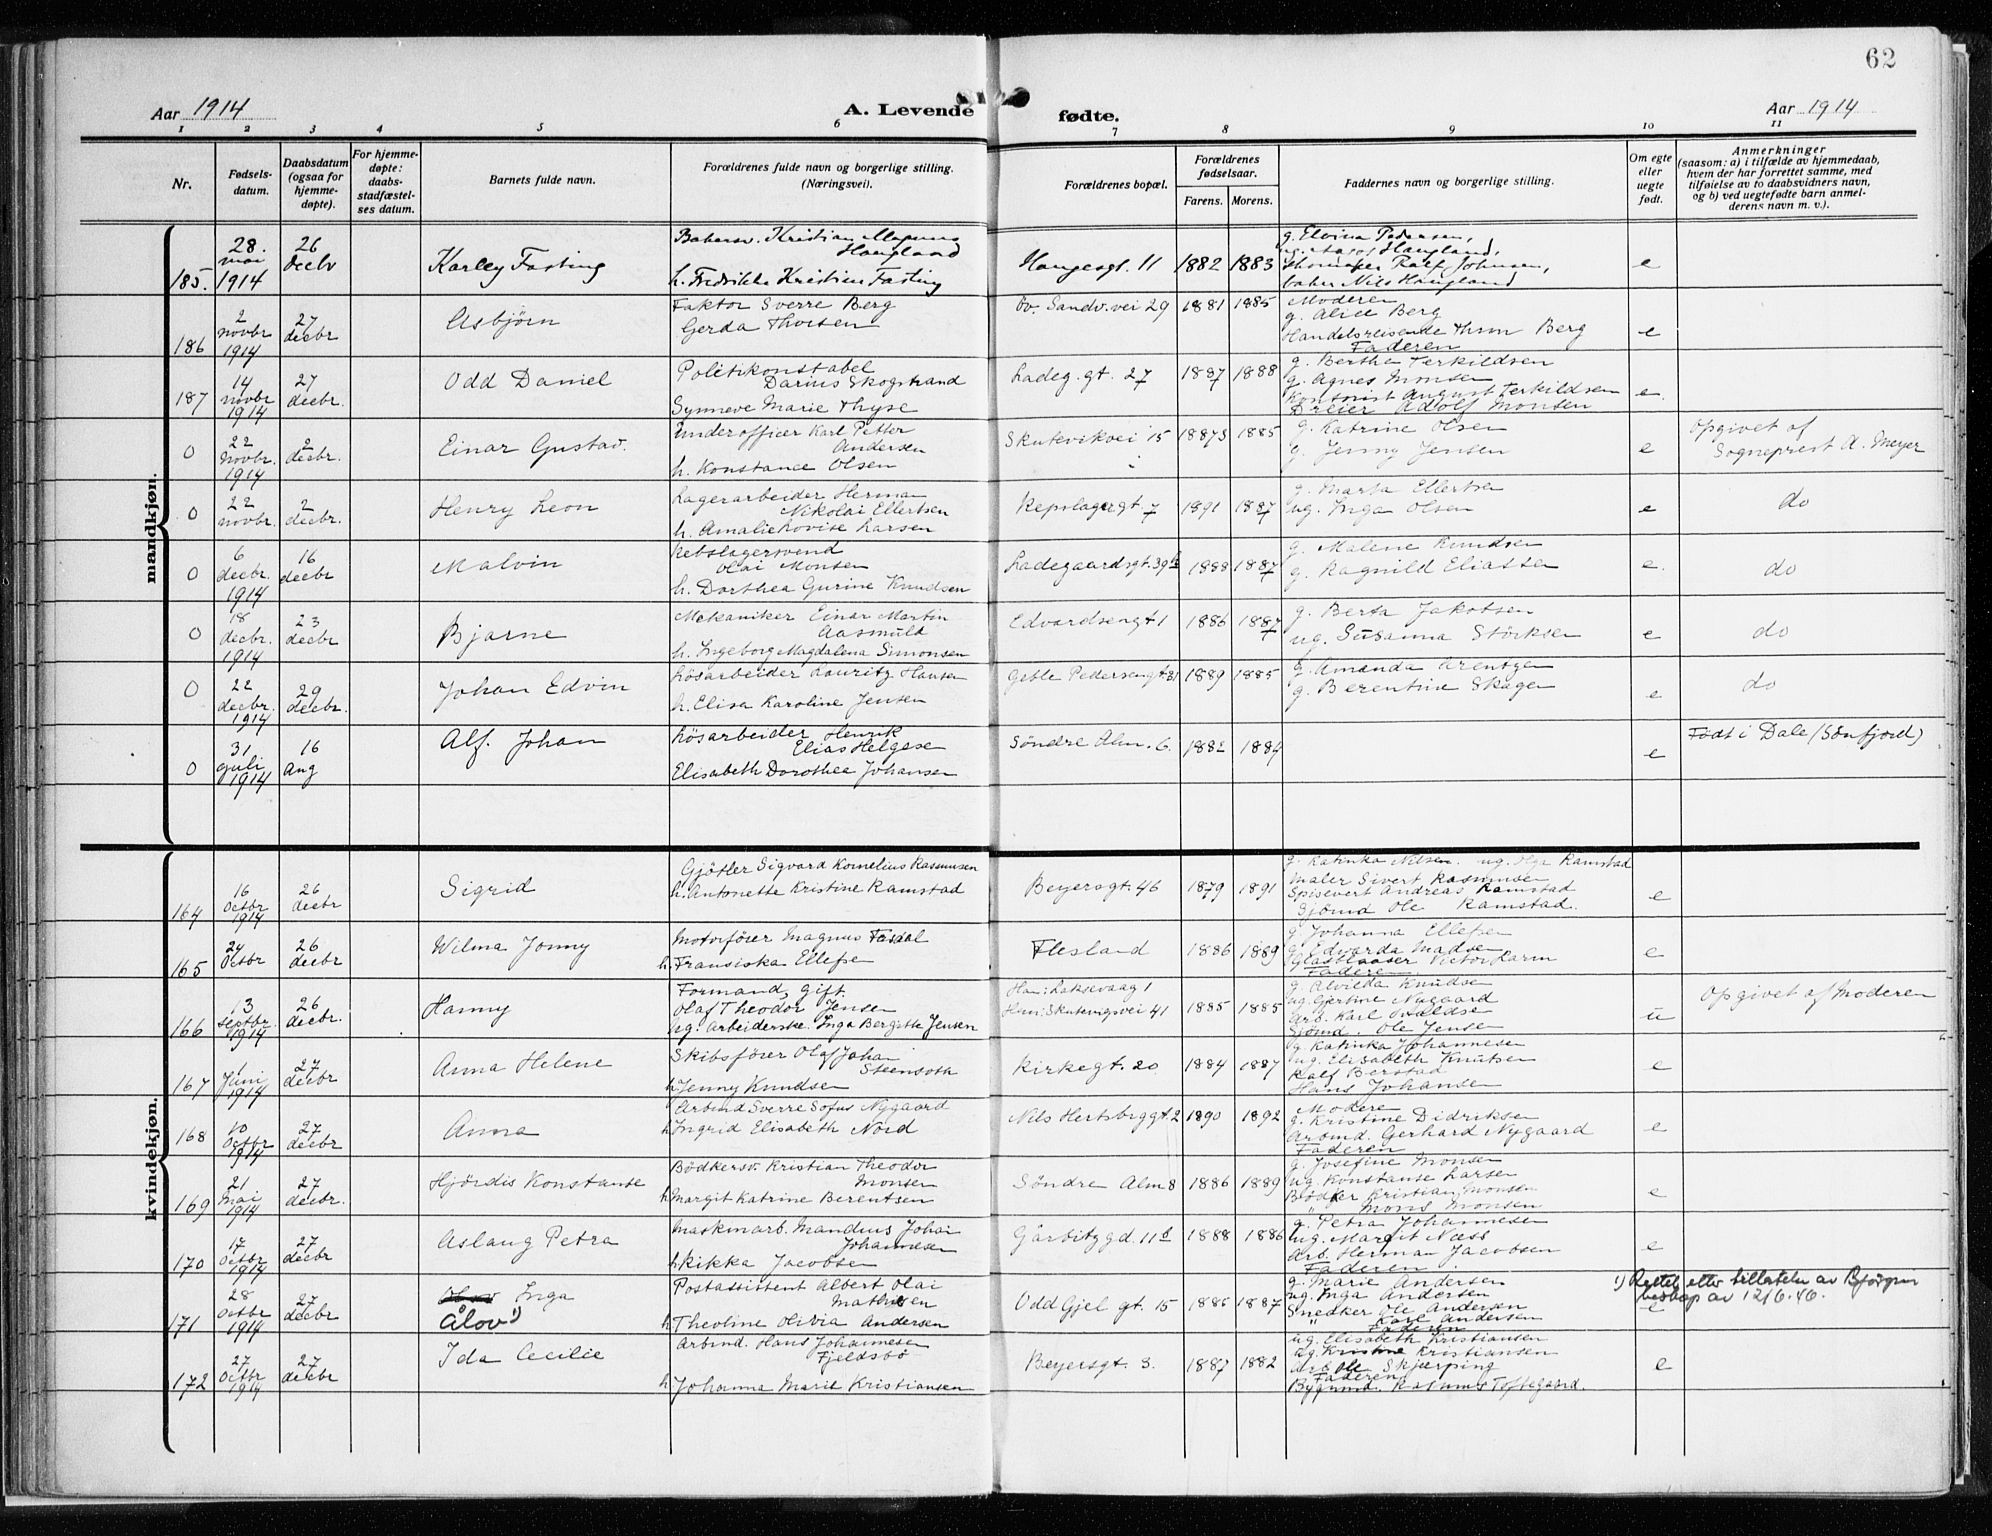 62
Aar 1914
A. Levende fødte.
Aar 1914
1 2 3 4 5 6 7 8 9 10 11
Nr.
Fødsels-
datum.
Daabsdatum
(ogsaa for
hjemme-
døpte).
For hjemme-
døpte:
daabs-
stadfæstel-
ses datum.
Barnets fulde navn.
Forældrenes fulde navn og borgerlige stilling.
(Næringsvei).
Forældrenes bopæl.
Forældrenes
fødselsaar.
Farens. Morens.
Faddernes navn og borgerlige stilling.
Om egte
eller
uegte
født.
Anmerkninger
(saasom: a) i tilfælde av hjemmedaab,
hvem der har forrettet samme, med
tilføielse av to daabsvidners navn,
og b) ved uegtefødte barn anmel-
derens navn m. v.).
mandkjøn.
185.
28.
mai
1914
26
decbr
Karley Fasting
Bakersv. Kristian Magnus
Haugland
h. Fredrikke Kristine Fasting
Haugesgt. 11
1882 1883
g. Elvina Pedersen,
Haugland,
Ralf Johnsen,
baker Nils Haugland
e
186
2
novbr
1914
27
decbr
Asbjørn
Faktor Sverre Berg
Gerda Thorsen
Øv. Sandv. vei 29
1881 1885
Moderen
g. Alice Berg
Handelsreisende Thom Berg
Faderen
e
187
14
novbr
1914
27
decbr.
Odd Daniel
Politikonstabel
Darius Skogstrand
Synneve Marie Thyse
Ladeg. gt. 27
1887 1888
g. Bertha Terkildsen
g. Agnes Monsen
Kontorist August Terkildsen
Dreier Adolf Monsen
e.
0
22
Novbr.
1914
2
decbr.
Einar Gustav.
Underofficer Karl Petter
Andersen
h. Konstance Olsen
Skutevikvei 15
1885
g. Katrine Olsen
g. Jenny Jensen
e
Opgivet af
Sogneprest A. Meyer
0
22
novbr.
2
decbr.
Henry Leon
Lagerarbeider Herman
Nikolai Ellertsen
h. Amalie Lovise Larsen
Repslagergt. 7
1891 1887
g. Marta Ellertsen
ug. Inga Olsen
e
do
0
6
decbr.
1914
16
decbr
Malvin
Rebslagersvend
Olai Monsen
h. Dorthea Gurine Knudsen
Ladegaardsgt. 39
1888 1887
g. Malene Knudsen
g. Ragnild Eliassen
e.
do
0
18
decbr.
1914
23
decbr
Bjarne
Mekaniker Einar Martin
Aasmuld
h. Ingeborg Magdalena Simonsen
Edvardsengt 1
1886 1887
g. Berta Jakobsen
ug. Susanna Störksen
e
do
0
22
decbr.
1914
29
decbr.
Johan Edvin
Lösarbeider Lauritz Hansen
h. Elisa Karoline Jensen
Geble Pedersengt 31
1889 1885
g. Amanda Arentzen
g. Berentine Skagen
e
do
0
31
juli
1914
16
Aug
Alf. Johan
Lösarbeider Henrik
Elias Helgesen
Elisabeth Dorothea Johansen
Söndre Alm. 6.
1882 1884
e
Født i Dale (Sønfjord)
kvindekjøn.
164
16
Octbr
1914
26
decbr
Sigrid
Gjörtler Sigvard Kornelius Rasmussen
h. Antonette Kristine Ramstad
Beyersgt. 46
1879 1891
g. Katinka Nilsen. ug. Olga Ramstad
Maler Sivert Rasmussen
Andreas Ramstad
Sjömd Ole Ramstad.
e
165
24
Octbr
26
decbr
Wilma Jonny
Motorfører Magnus Fasdal
h. Fransiska Ellefsen
Flesland
1886 1889
g. Johanna Ellefsen
g. Edvarda Madsen
Glasblaaser Victor Karm
Faderen.
e
166
13
septbr.
1914
26
decbr.
Hanny
Formand, gift.
Olaf Theodor Jensen
ug. Arbeiderske. Inga Bergitte Jensen
Han: Laksevaag 1
Hun: Skutevigsvei 41
1885 1885
g. Alvilda Knudsen
ug. Gjertine Nygaard
arb. Karl
Sjömd. Ole Jensen
u
Opgivet af Moderen
167
1
Juni
1914
27
decbr
Anna Helene
Skibsfører Olaf Johan
Steensoth
h. Jenny Knudsen
Kirkegt. 20
1884 1887
g. Katinka Johannesen
ug. Elisabeth Knutsen
Ralf Berstad
Hans Johansen
e
168
10
Octbr
1914
27
decbr
Anna
Arbmd Sverre Sofus Nygaard
h. Ingrid Elisabeth Nord
Nils Hertsbrggt. 2
1890 1892
Modere
g. Kristine Didriksen
Arbmd. Gerhard Nygaard
Faderen
e
169
21
Mai
1914
27
decbr.
Hjördis Konstanse
Bödkersv. Kristian Theodor
Monsen
h. Margit Katrine Berentsen
Söndre Alm 8
1886 1889
g. Josefine Monsen
ug. Konstanse Larsen
Bödker Kristian Monsen
" Mons Monsen
e
170
17
Octbr
1914
27
decbr
Aslaug Petra
Maskinarb. Mandius Johan
Johannesen
h. Rikka Jacobsen
Gårbitzgd. 11 b
1888 1886
g. Petra Johannesen
ug. Margit Næss
Arb. Herman Jacobsen
Faderen.
e
171
28
Octbr
1914
27
decbr
Inga
Ålov 1)
Postassistent Albert Olai
Mathisen
h. Theoline Olivia Andersen
Odd Gjel gt. 15
1885 1887
g. Marie Andersen
ug. Inga Andersen
Snedker Ole Andersen
" Karl Andersen
Faderen
e
1) Rettet etter tillatelse av Bjørgvin
biskop av 12/6.46.
172
27
Octbr
1914
27
decbr
Ida Cecilie
Arbmd. Hans Johannesen
Fjeldsbö
h. Johanna Marie Kristiansen
Beyersgt. 3.
1887 1882
ug. Elisabeth Kristiansen
ug. Kristine Kristiansen
Arb Ole Skjerping
Faderen
Bygmd. Rasmus Toftegaard.
e